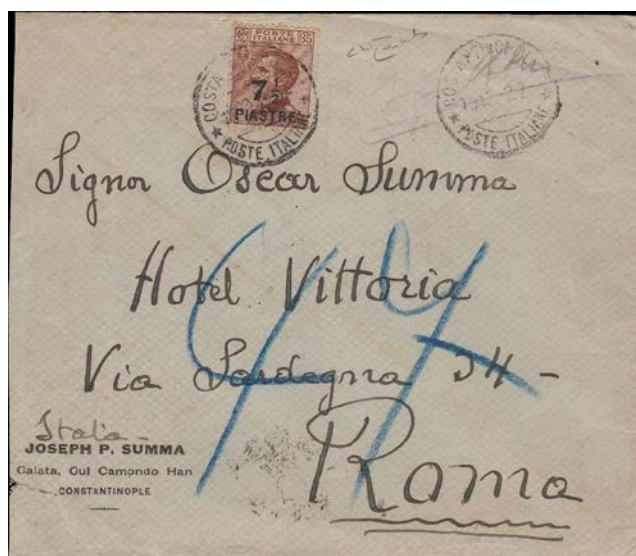 85 POSTE ITALIANE 85
7 1/2
PIASTRE
COSTA
★ POSTE ITALIANE ★
★ POSTE ITALIANE ★
Signor Oscar Summa
Hotel Vittoria
Via Sardegna 34-
Italia-
Roma
JOSEPH P. SUMMA
Galata, Gul Camondo Han
CONSTANTINOPLE